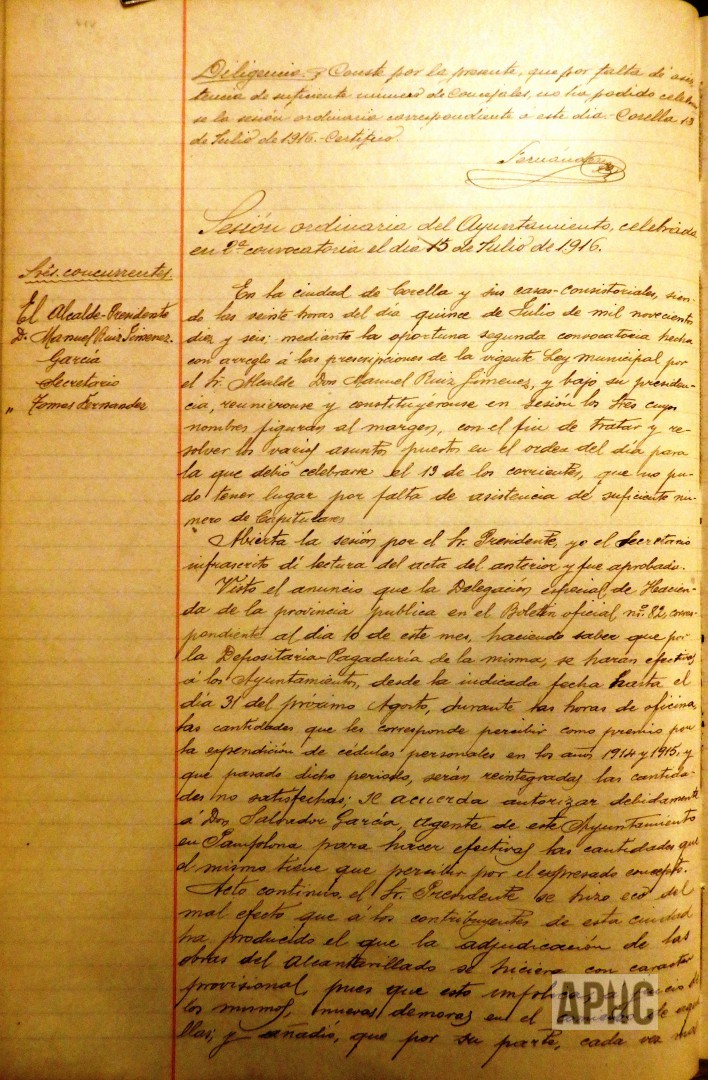 Diligencia. Conste por la presente, que por falta de asis-
tencia de suficiente número de Concejales, no ha podido celebrar-
se la sesión ordinaria correspondiente á este dia. Corella 13
de Julio de 1916.-Certifico.
Fernández
Sesión ordinaria del Ayuntamiento, celebrada
en 2ª convocatoria el dia 15 de Julio de 1916.
Srés. concurrentes.
El Alcalde-Presidente
D. Manuel Ruiz Jimenez.
García
Secretario
" Tomas Fernandez
En la ciudad de Corella y sus casas-consistoriales, sien-
do las veinte horas del dia quince de Julio de mil novecientos
diez y seis; mediante la oportuna segunda convocatoria hecha
con arreglo á las prescripciones de la vigente Ley municipal por
el Sr. Alcalde Don Manuel Ruiz Jimenez, y bajo su presiden-
cia, reunieronse y constituyéronse en sesión los Sres cuyos
nombres figuran al margen, con el fin de tratar y re-
solver los varios asuntos puestos en el orden del dia para
la que debió celebrarse el 13 de los corrientes, que no pu-
do tener lugar por falta de asistencia de suficiente nú-
mero de Capitulares
Abierta la sesión por el Sr. Presidente, yo el Secretario
infrascrito dí lectura del acta del anterior y fue aprobada.
Visto el anuncio que la Delegación especial de Hacien-
da de la provincia publica en el Boletin oficial nº 82, corres-
pondiente al dia 10 de este mes, haciendo saber que por
la Depositaria-Pagaduría de la misma, se haran efectivas
á los Ayuntamientos, desde la indicada fecha hasta el
día 31 del próximo Agosto, durante las horas de oficina,
las cantidades que les corresponde percibir como premio por
la expendición de cédulas personales en los años 1914 y 1915, y
que pasado dicho periodo, serán reintegradas las cantida-
des no satisfechas; se acuerda autorizar debidamente
á Don Salvador García, agente de este Ayuntamiento
en Pamplona para hacer efectivas las cantidades que
el mismo tiene que percibir por el expresado concepto.
Acto continuo, el Sr. Presidente se hizo eco del
mal efecto que á los contribuyentes de esta ciudad
ha producido el que la adjudicación de las
obras del Alcantarillado se hiciera con caracter
provisional, pues que esto implica de
los mismos, nuevas demoras en el de aque-
llas; y añadió, que por su parte, cada vez mas
APHC